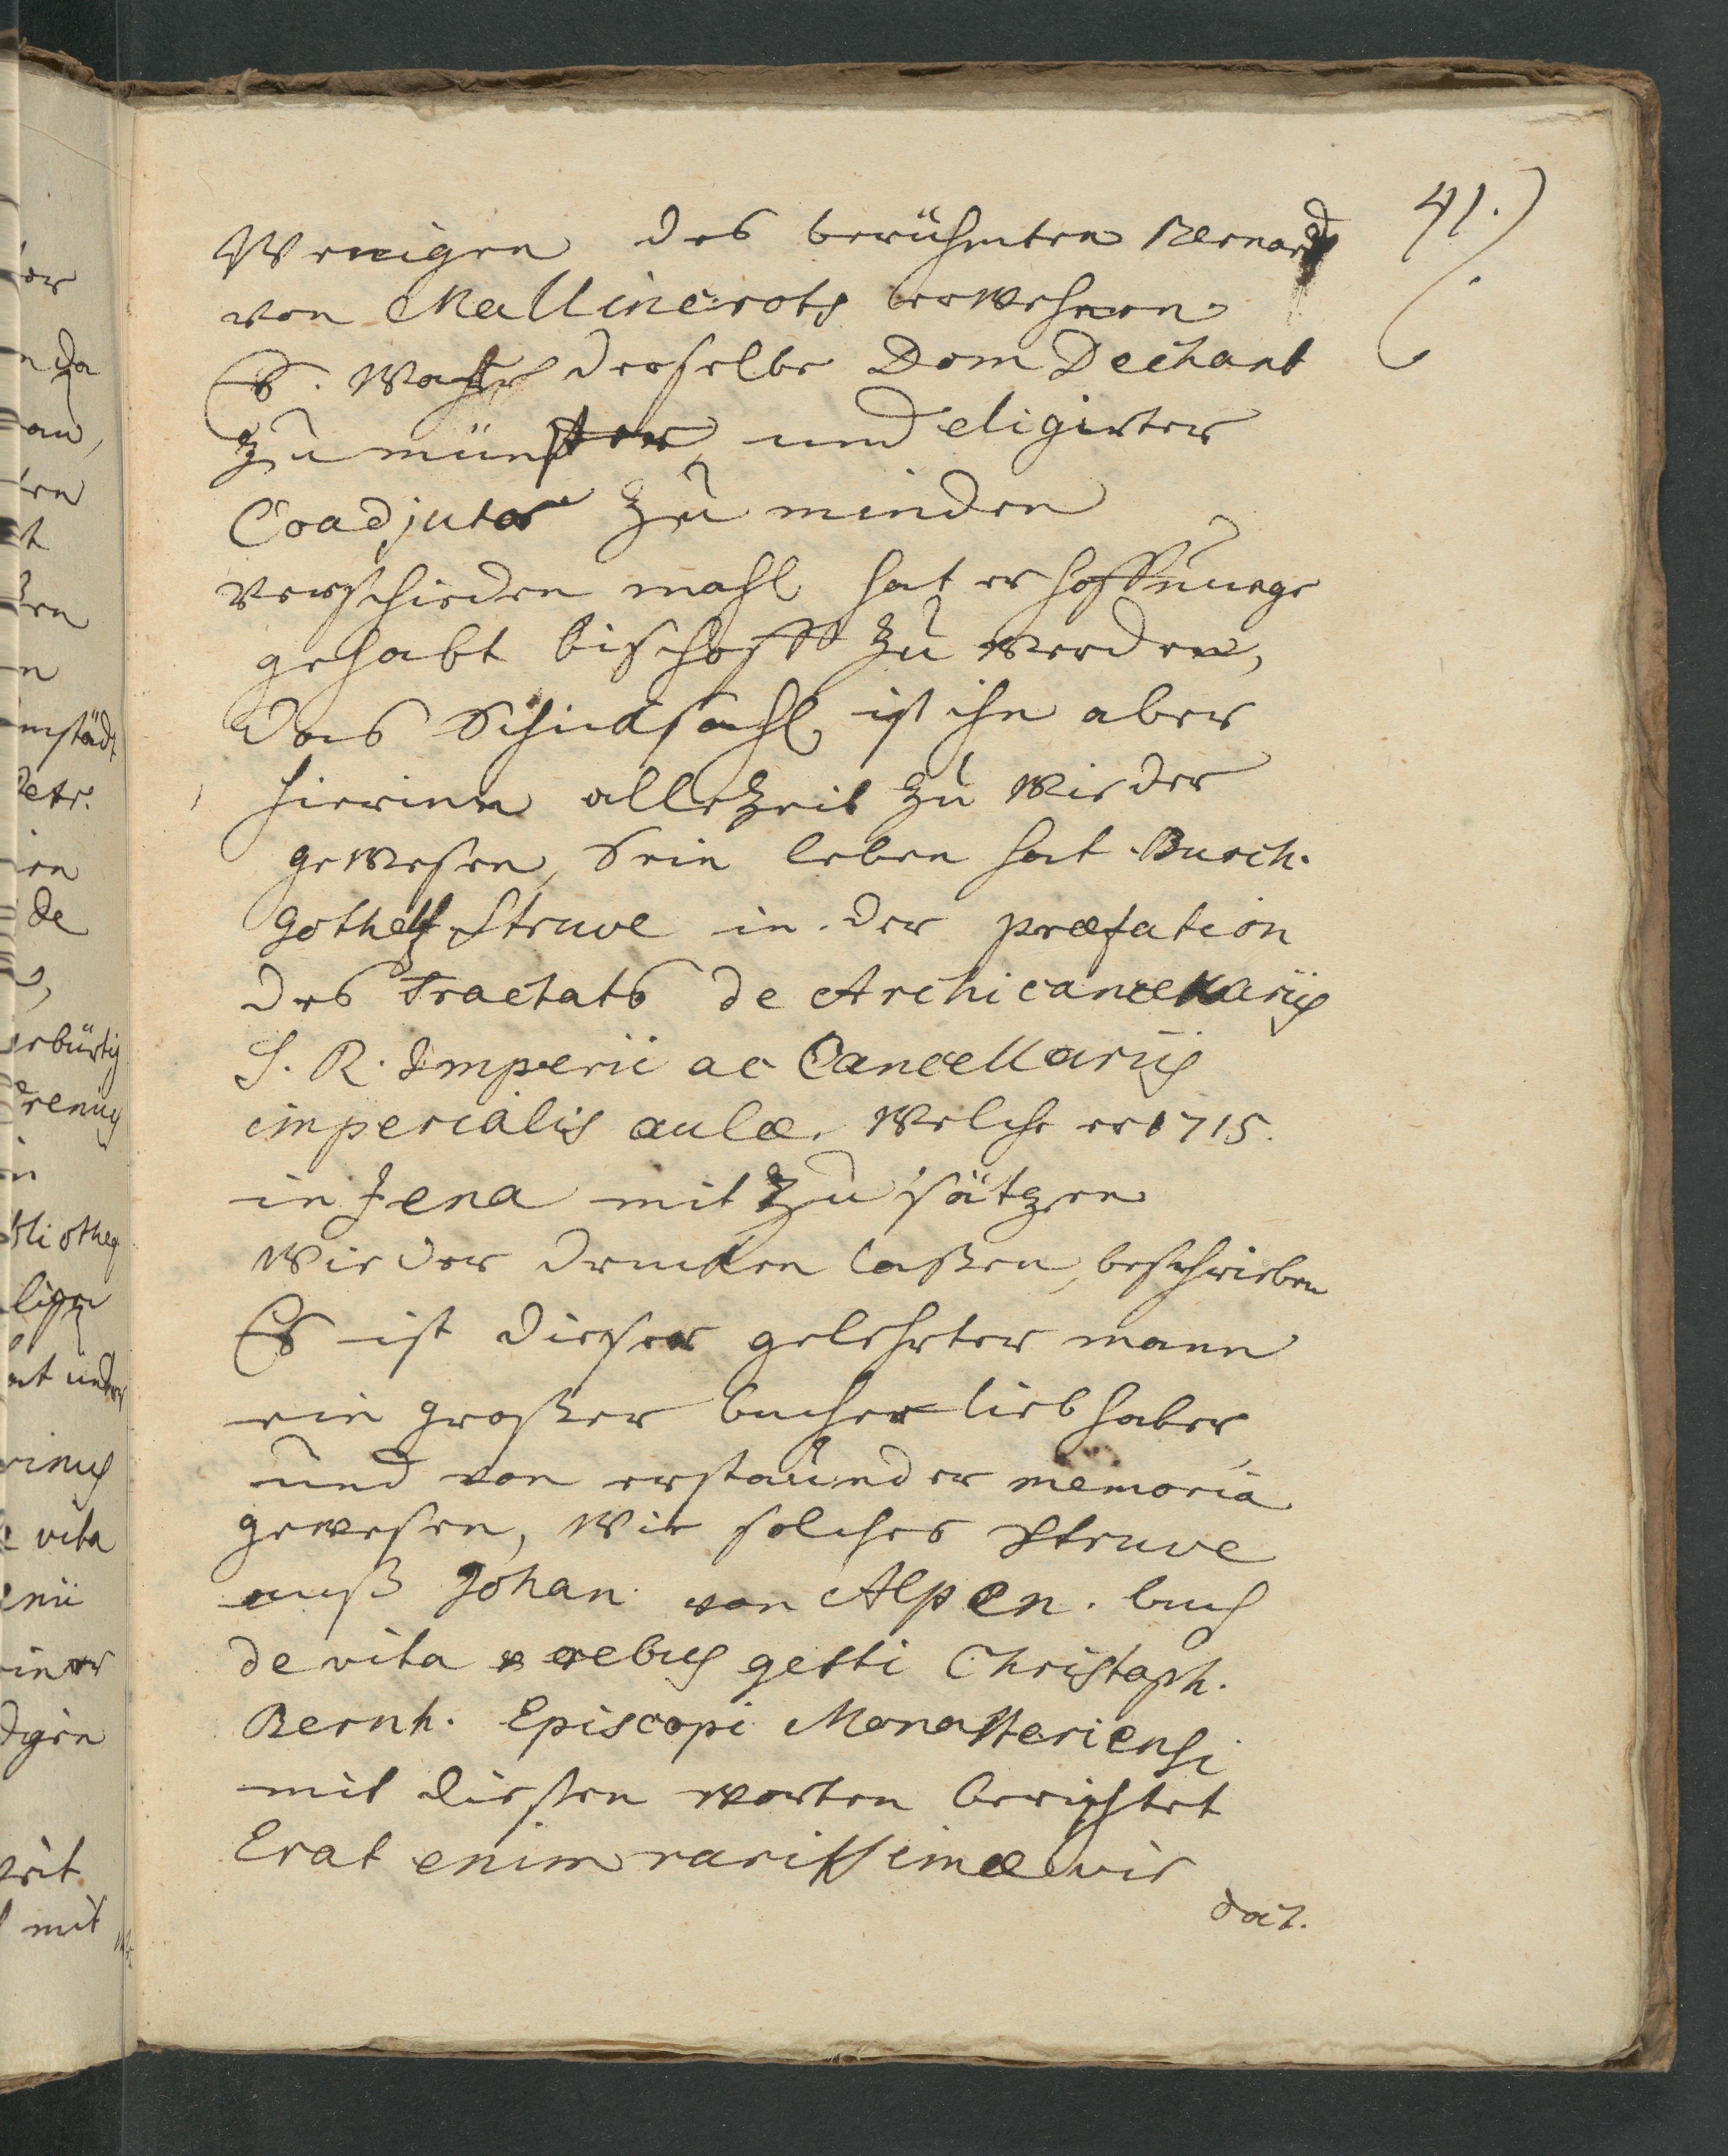 41.)
Wenigen des berühmten Bernard
von Mallincrots erwehnen
Es. wahr derselbe Dom Dechant
zu münster, und eligirter
Coadjutor zu minden
verschieden mahl hat er hoffnunge
gehabt bischoff zu werden,
Das Schicksahl ist ihn aber
hierinn allezeit zu wieder
gewesen, Sein leben hat Burch.
Gothelf Struve in der præfation
des Tractats de Archicancellariis
S. R. Imperii ac Cancellariis
imperialis aulæ. welche er 1715.
in Jena mit zusätzen
wieder drucken laßen, beschrieben
Es ist dieser gelehrter mann
ein großer bucher liebhaber
und von erstaunder memoria
gewesen, wie solches Struve
auß Johan von Alpen. buch
de vita & rebus gesti Christoph.
Bernh. Episcopi Monasteriensi
mit diesen worten berichtet
Erat enim rarissimæ vir